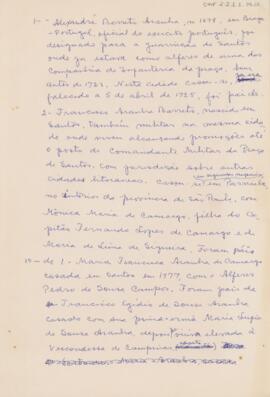 1- Alexandre Barreto Aranha, n. 1698, em Braga
-Portugal, oficial do exercito português, foi
designado para a guarnição de Santos
onde ja estava como alferes de uma das
Companhias de Infantaria da praça, bem
antes de 1723. Nesta cidade casou-se
falecido a 5 de abril de 1795, foi pai de
2- Francisco Aranha Barreto, nascido em
Santos, também militar na mesma cida
de onde viveu alcançando promoções até
o posto de Comandante Militar da Praça
de Santos. Com jurisdição sobre outras
cidades litoraneas. Casou-se em Parnaiba
no interior da provincia de São Paulo, com
Mônica Maria de Camargo, filha do Ca
pitão Fernando Lopes de Camargo e de
Maria de Lima de Siqueira. Foram pais
de 1- Maria Francisca Aranha de Camargo
casada em Santos em 1777, com o Alferes
Pedro de Souza Campos. Foram pais de
Francisco Egidio de Souza Aranha
casado com sua prima-irmã Maria Luzia
de Souza Aranha, depois viuva elevada à
Viscondessa de Campinas